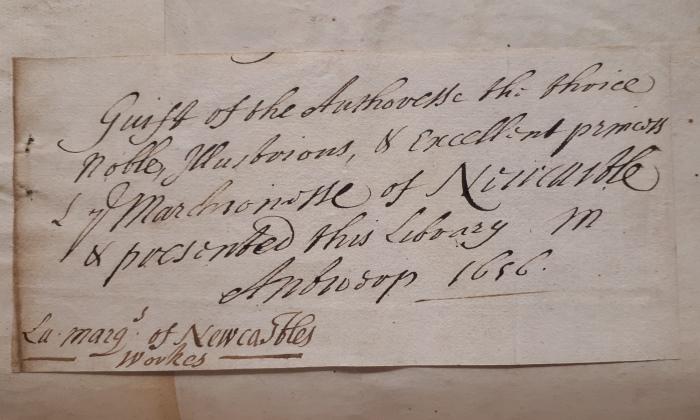 Guift of the Authoresse the thrice
Noble, Illustrious, & Excellent princess
ye Marchionesse of Newcastle
& presented this Library m
Antwerp 1656.
La. marqs. of Newcastles
workes